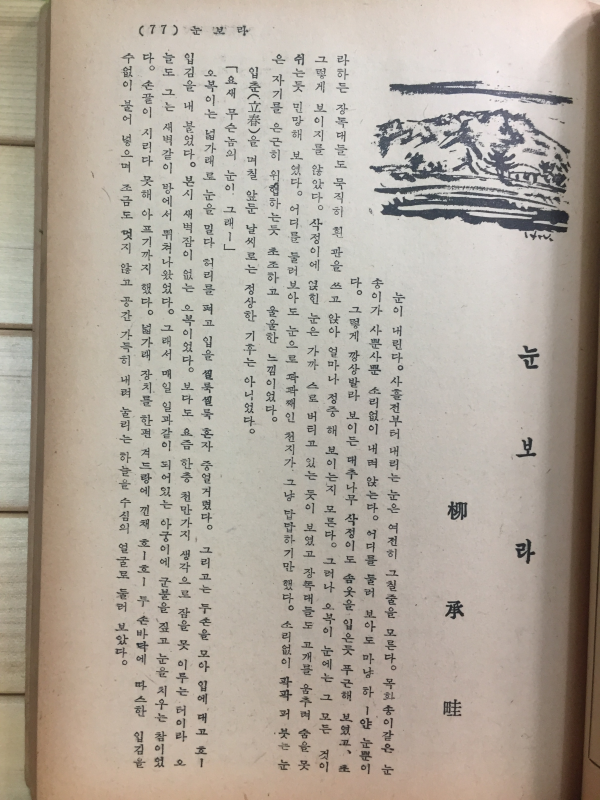 (77) 눈보라
눈보라
柳承畦
눈이 내린다。사흘전부터 내리는 눈은 여전히 그칠줄을 모른다。목화송이같은 눈
송이가 사뿐사뿐 소리없이 내려 앉는다。어디를 둘러 보아도 마냥 하ー얀 눈뿐이
다。그렇게 깡상발라 보이든 대추나무 삭정이도 솜옷을 입은듯 푸근해 보였고、초
라하든 장독대들도 묵직히 흰 관을 쓰고 앉아 얼마나 정중해 보이는지 모른다。그러나 오복이 눈에는 그 모든 것이
그렇게 보이지를 않았다。삭정이에 얹힌 눈은 가까스로 버티고 있는 듯이 보였고 장독대들도 고개를 움추려 숨을 못
쉬는듯 민망해 보였다。어디를 둘러보아도 눈으로 꽉꽉째인 천지가 그냥 답답하기만 했다。소리없이 꽉꽉 퍼붓는 눈
은 자기를 은근히 위협하는듯 초조하고 울울한 느낌이었다。
입춘(立春)을 며칠 앞둔 날씨로는 정상한 기후는 아니었다。
「요새 무슨놈의 눈이 그래ー」
오복이는 넓가래로 눈을 밀다 허리를 펴고 입을 씰룩씰룩 혼자 중얼거렸다。그리고는 두손을 모아 입에 대고 호ー
입김을 내 불었다。본시 새벽잠이 없는 오복이었다。보다도 요즘 한층 천만가지 생각으로 잠을 못 이루는 터이라 오
늘도 그는 새벽같이 방에서 뛰쳐나왔었다。그래서 매일 일과같이 되어있는 아궁이에 군불을 짚고 눈을 치우는 참이었
다。손끝이 시리다 못해 아프기까지 했다。넓가래 장치를 한편 겨드랑에 낀채 호ー호ー 두 손바닥에 따스한 입김을
수없이 불어 넣으며 조금도 멎지 않고 공간 가득히 내려 눌리는 하늘을 수심의 얼굴로 둘러 보았다。